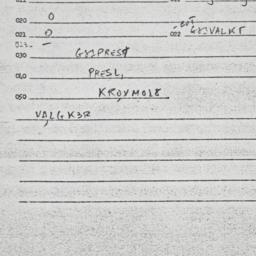 020 0
021 0
022 GYIVALKT
013.
030 GYIPREST
040 PRESL,
050 KROYMO18
VALGK3R